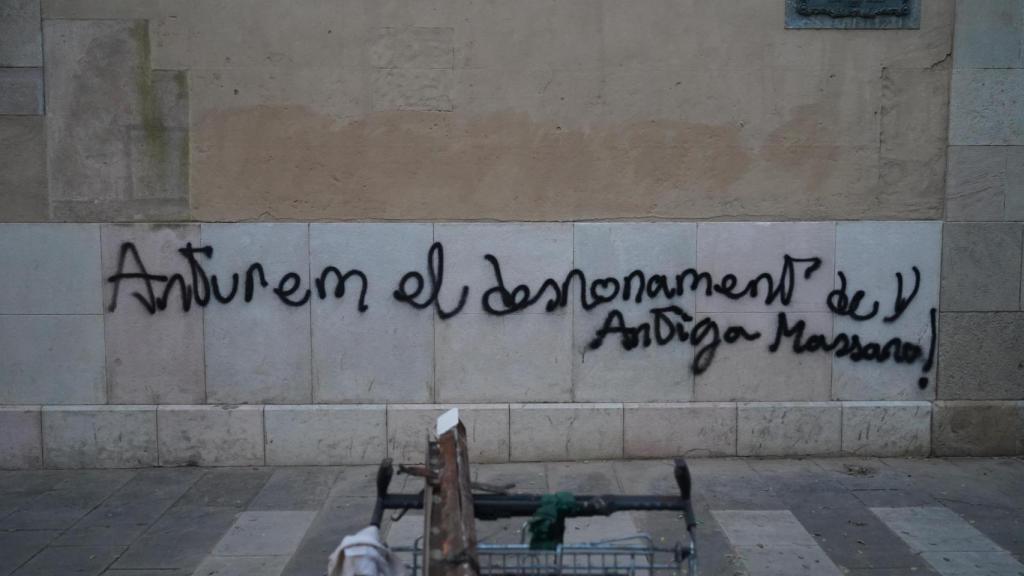 Anturem el desnonament de l'
Antiga Massana!